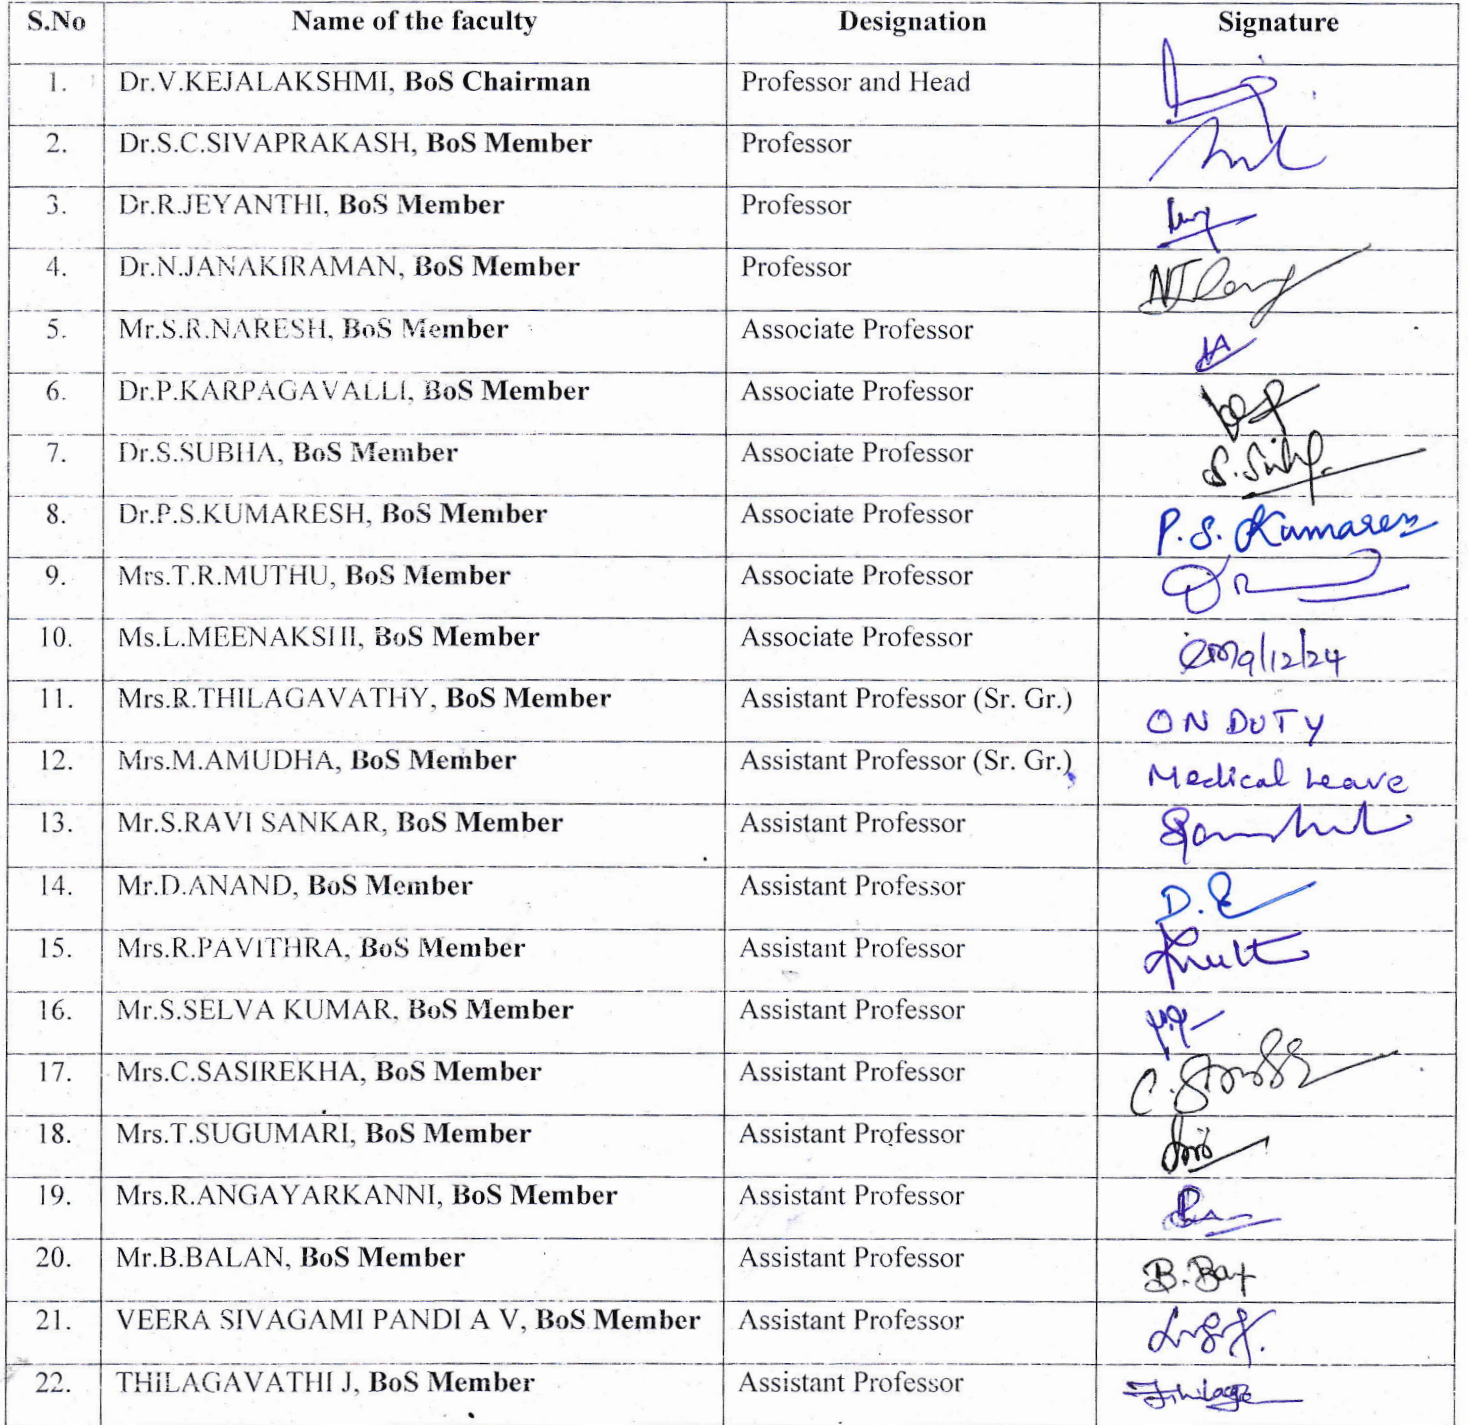 S.No Name of the faculty Designation Signature
1. Dr.V.KEJALAKSHMI, BoS Chairman Professor and Head
2. Dr.S.C.SIVAPRAKASH, BoS Member Professor
3. Dr.R.JEYANTHI, BoS Member Professor
4. Dr.N.JANAKIRAMAN, BoS Member Professor
5. Mr.S.R.NARESH, BoS Member Associate Professor
6. Dr.P.KARPAGAVALLI, BoS Member Associate Professor
7. Dr.S.SUBHA, BoS Member Associate Professor
8. Dr.P.S.KUMARESH, BoS Member Associate Professor P.S.
9. Mrs.T.R.MUTHU, BoS Member Associate Professor
10. Ms.L.MEENAKSHI, BoS Member Associate Professor 9/12/24
11. Mrs.R.THILAGAVATHY, BoS Member Assistant Professor (Sr. Gr.) ON DUTY
12. Mrs.M.AMUDHA, BoS Member Assistant Professor (Sr. Gr.) Medical Leave
13. Mr.S.RAVI SANKAR, BoS Member Assistant Professor
14. Mr.D.ANAND, BoS Member Assistant Professor
15. Mrs.R.PAVITHRA, BoS Member Assistant Professor
16. Mr.S.SELVA KUMAR, BoS Member Assistant Professor
17. Mrs.C.SASIREKHA, BoS Member Assistant Professor
18. Mrs.T.SUGUMARI, BoS Member Assistant Professor
19. Mrs.R.ANGAYARKANNI, BoS Member Assistant Professor
20. Mr.B.BALAN, BoS Member Assistant Professor
21. VEERA SIVAGAMI PANDI A V, BoS Member Assistant Professor
22. THILAGAVATHI J, BoS Member Assistant Professor